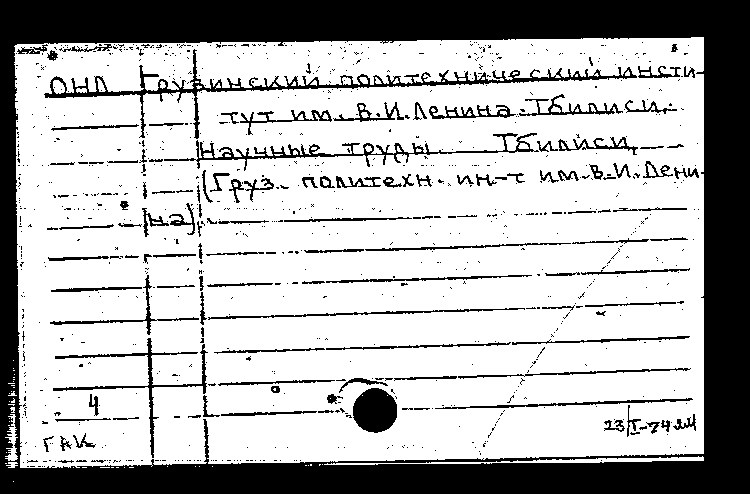 ОНЛ Грузинский политехнический инсти-
тут им. В.И.Ленина. Тбилиси.
Научные труды. Тбилиси,
(Груз. политехн. ин-т им. В.И. Лени-
на).
4
ГАК
23/I-74